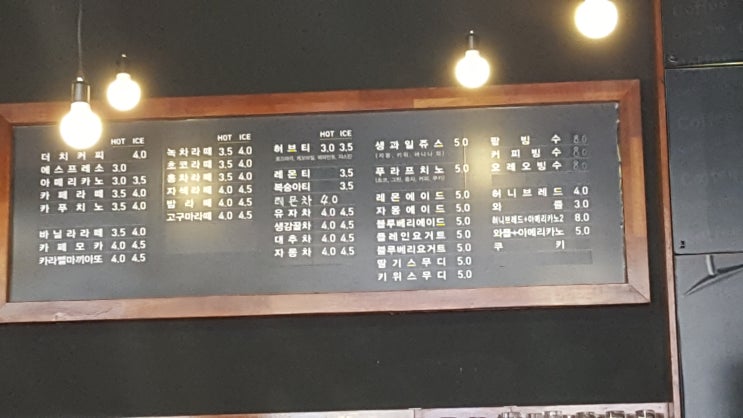 HOT ICE
더치커피 4.0
에스프레소 3.0
아메리카노 3.0 3.5
카페라떼 3.5 4.0
카푸치노 3.5 4.0
바닐라라떼 3.5 4.0
카페모카 4.0 4.5
카라멜마끼아또 4.0 4.5
HOT ICE
녹차라떼 3.5 4.0
초코라떼 3.5 4.0
홍차라떼 3.5 4.0
자색라떼 4.0 4.5
밤라떼 4.0 4.5
고구마라떼 4.0 4.5
HOT ICE
허브티 3.0 3.5
레몬티 3.5
복숭아티 3.5
레몬차 4.0
유자차 4.0 4.5
생강꿀차 4.0 4.5
대추차 4.0 4.5
자몽차 4.0 4.5
생과일쥬스 5.0
푸라프치노 5.0
레몬에이드 5.0
자몽에이드 5.0
블루베리에이드 5.0
플레인요거트 5.0
블루베리요거트 5.0
딸기스무디 5.0
키위스무디 5.0
팥빙수 8.0
커피빙수 8.0
오레오빙수 8.0
허니브레드 4.0
와플 3.0
허니브레드+아메리카노2 8.0
와플+아메리카노 5.0
쿠키